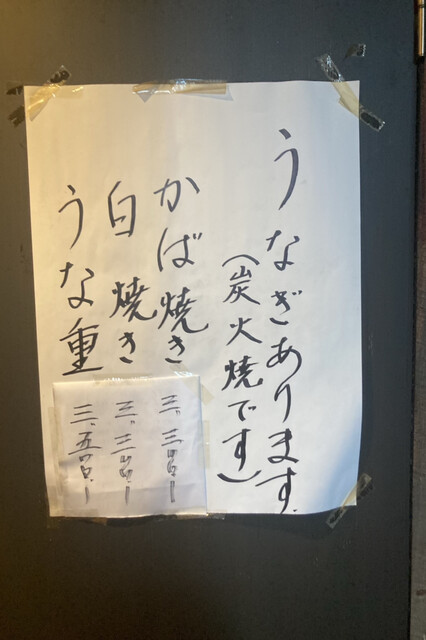 うなぎあります.
（炭火焼です）
かば焼き 三、三〇〇.ー
白焼き 三、三〇〇.ー
うな重 三、五〇〇.ー